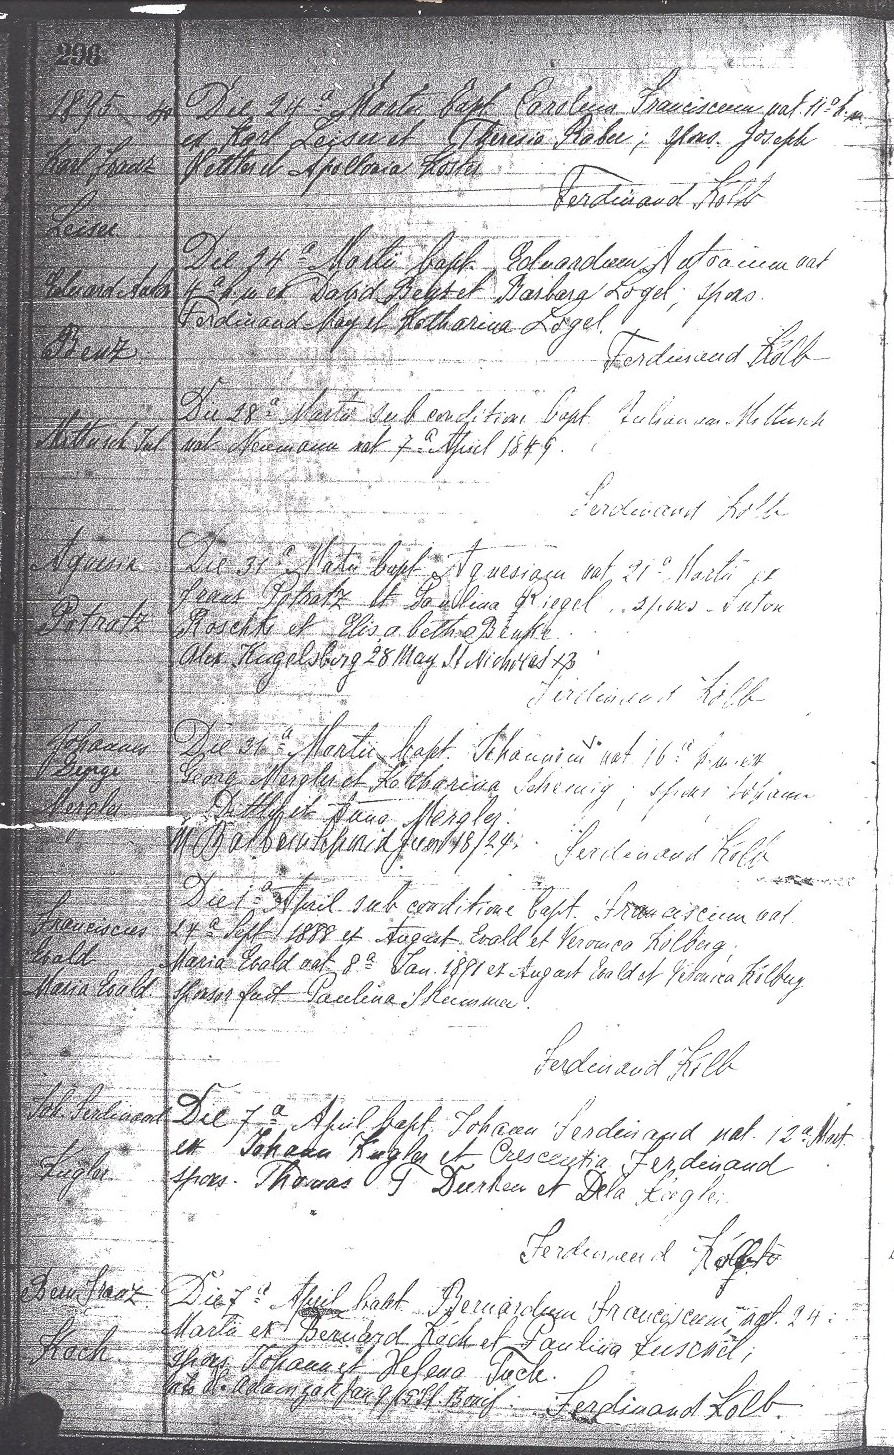 296
1895
Die 24ª Martii bapt. Carolum Franciscum nat. 11ª h. m.
Karl Franz
Leiser
ex Karl Leiser et Theresia Raber; spons. Joseph
et Apollonia
Ferdinand Kolb
Eduard Anton
Benz
Die 24ª Martii bapt. Eduardum Antonium nat
4ª h. m ex David Benz et Barbara Logel; spons.
Ferdinand May et Katharina Logel.
Ferdinand Kolb
Mettusch Jul
Die 28ª Martii sub conditione bapt. Julianam Mettusch
nat Neumann nat 7ª April 1849.
Ferdinand Kolb
Agnesia
Potratz
Die 31ª Martii bapt. Agnesiam nat 21ª Martii ex
Franz Potratz et Paulina Kriegel. spons. Anton
Roschke et Elisabetha Benke
Alex Kugelsberg 28 May St Nicholas
Ferdinand Kolb
Johannes
George
Mergler
Die 31ª Martii bapt. Johannem nat 16ª h. m. ex
Georg Mergler et Katharina; spons Johann
et Anna Mergler.
18/24.
Ferdinand Kolb
Franciscus
Evald
Maria Evald.
Die 1ª April sub conditione bapt. Franciscum nat.
24ª Sept 1888 ex August Evald et Veronica Kolberg.
Maria Evald nat 8ª Jan. 1891 ex August Evald et Veronica Kolberg
sponsor fuit Paulina
Ferdinand Kolb
Joh. Ferdinand
Kugler
Die 7ª April bapt. Johann Ferdinand nat. 12ª Mart.
ex Johann Kugler et Crescentia Ferdinand
spons. Thomas F Durken et Dela Kugler.
Ferdinand Kolb
Bern Franz
Koch
Die 7ª April bapt. Bernardum Franciscum, nat. 24
Martii ex Bernard Koch et Paulina
spons. Johann et Helena Tuch.
Jan 9/19 St. Bonif.
Ferdinand Kolb.